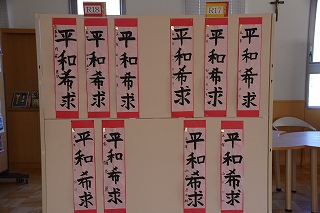 R18
R17
平和希求
平和希求
平和希求
平和希求
平和希求
平和希求
平和希求
平和希求
平和希求
平和希求